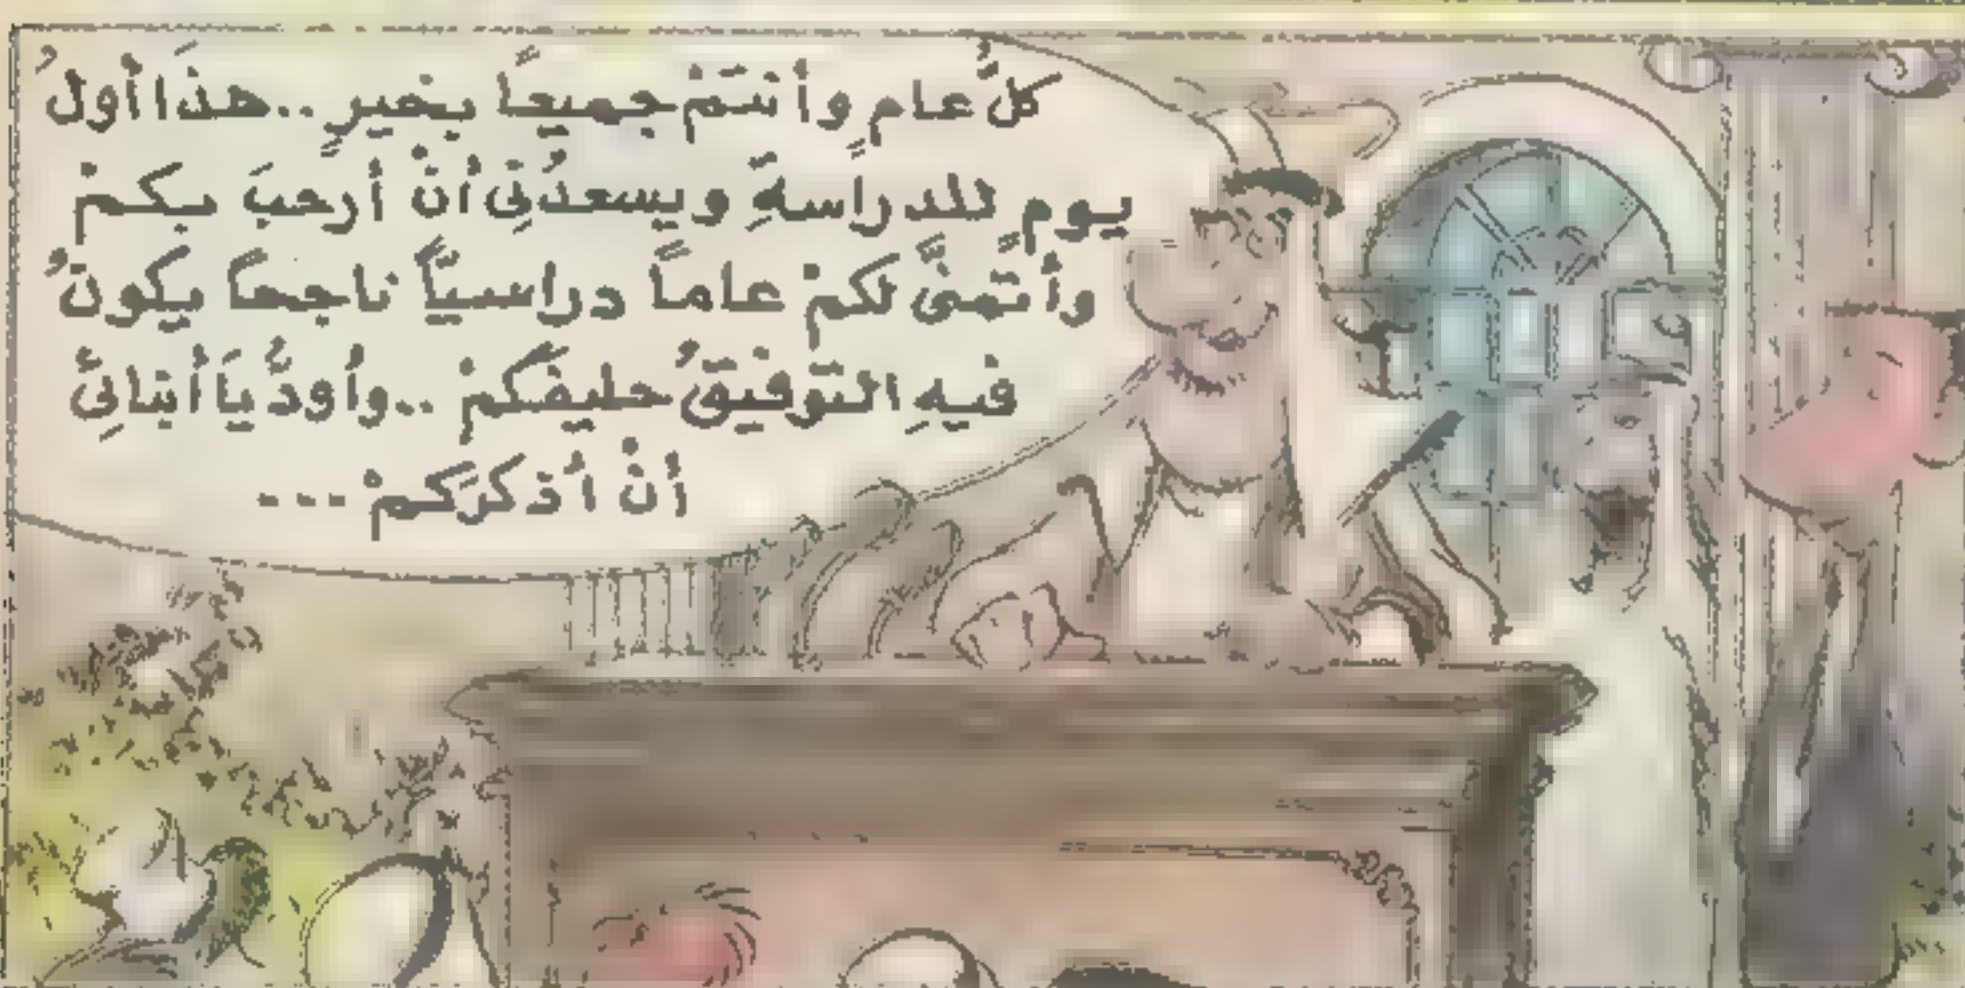 كلُّ عامٍ وأنتمْ جميعاً بخيرٍ .. هذَا أولُ
يومٍ للدراسةِ ويسعدُنِى أنْ أرحبَ بكمْ
وأتمنَّى لكمْ عاماً دراسيّاً ناجحاً يكونُ
فيهِ التوفيقُ حليفَكمْ .. وأودُّ يَا أبنائِى
أنْ أذكرَكمْ ...